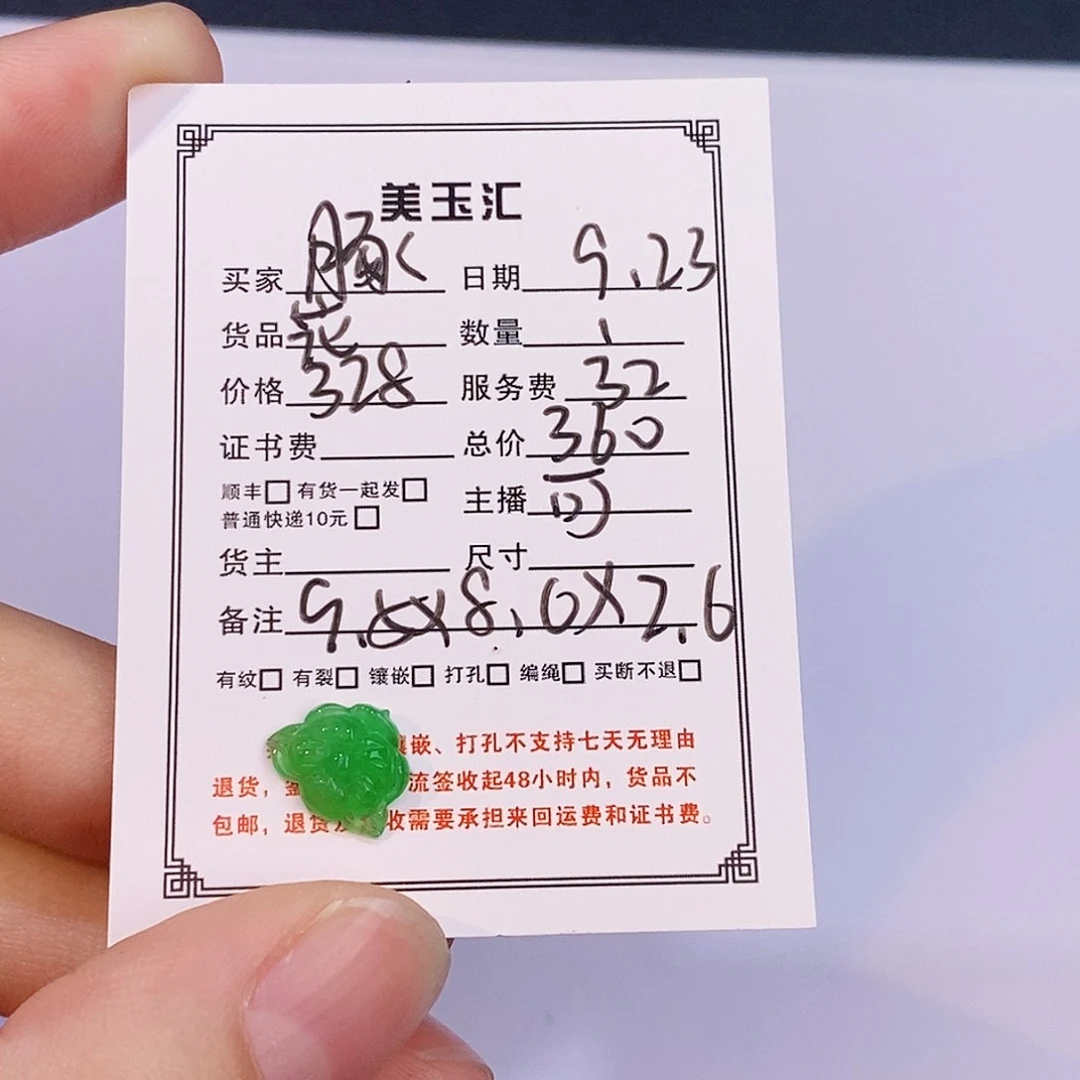 美玉汇
买家 日期 9.23
货品 花 数量 1
价格 328 服务费 32
证书费 总价 360
顺丰□ 有货一起发□
普通快递10元□ 主播
货主 尺寸
备注 9.6X8.0X2.6
有纹□ 有裂□ 镶嵌□ 打孔□ 编绳□ 买断不退□
嵌、打孔不支持七天无理由
退货, 流签收起48小时内, 货品不
包邮, 退货 收需要承担来回运费和证书费。